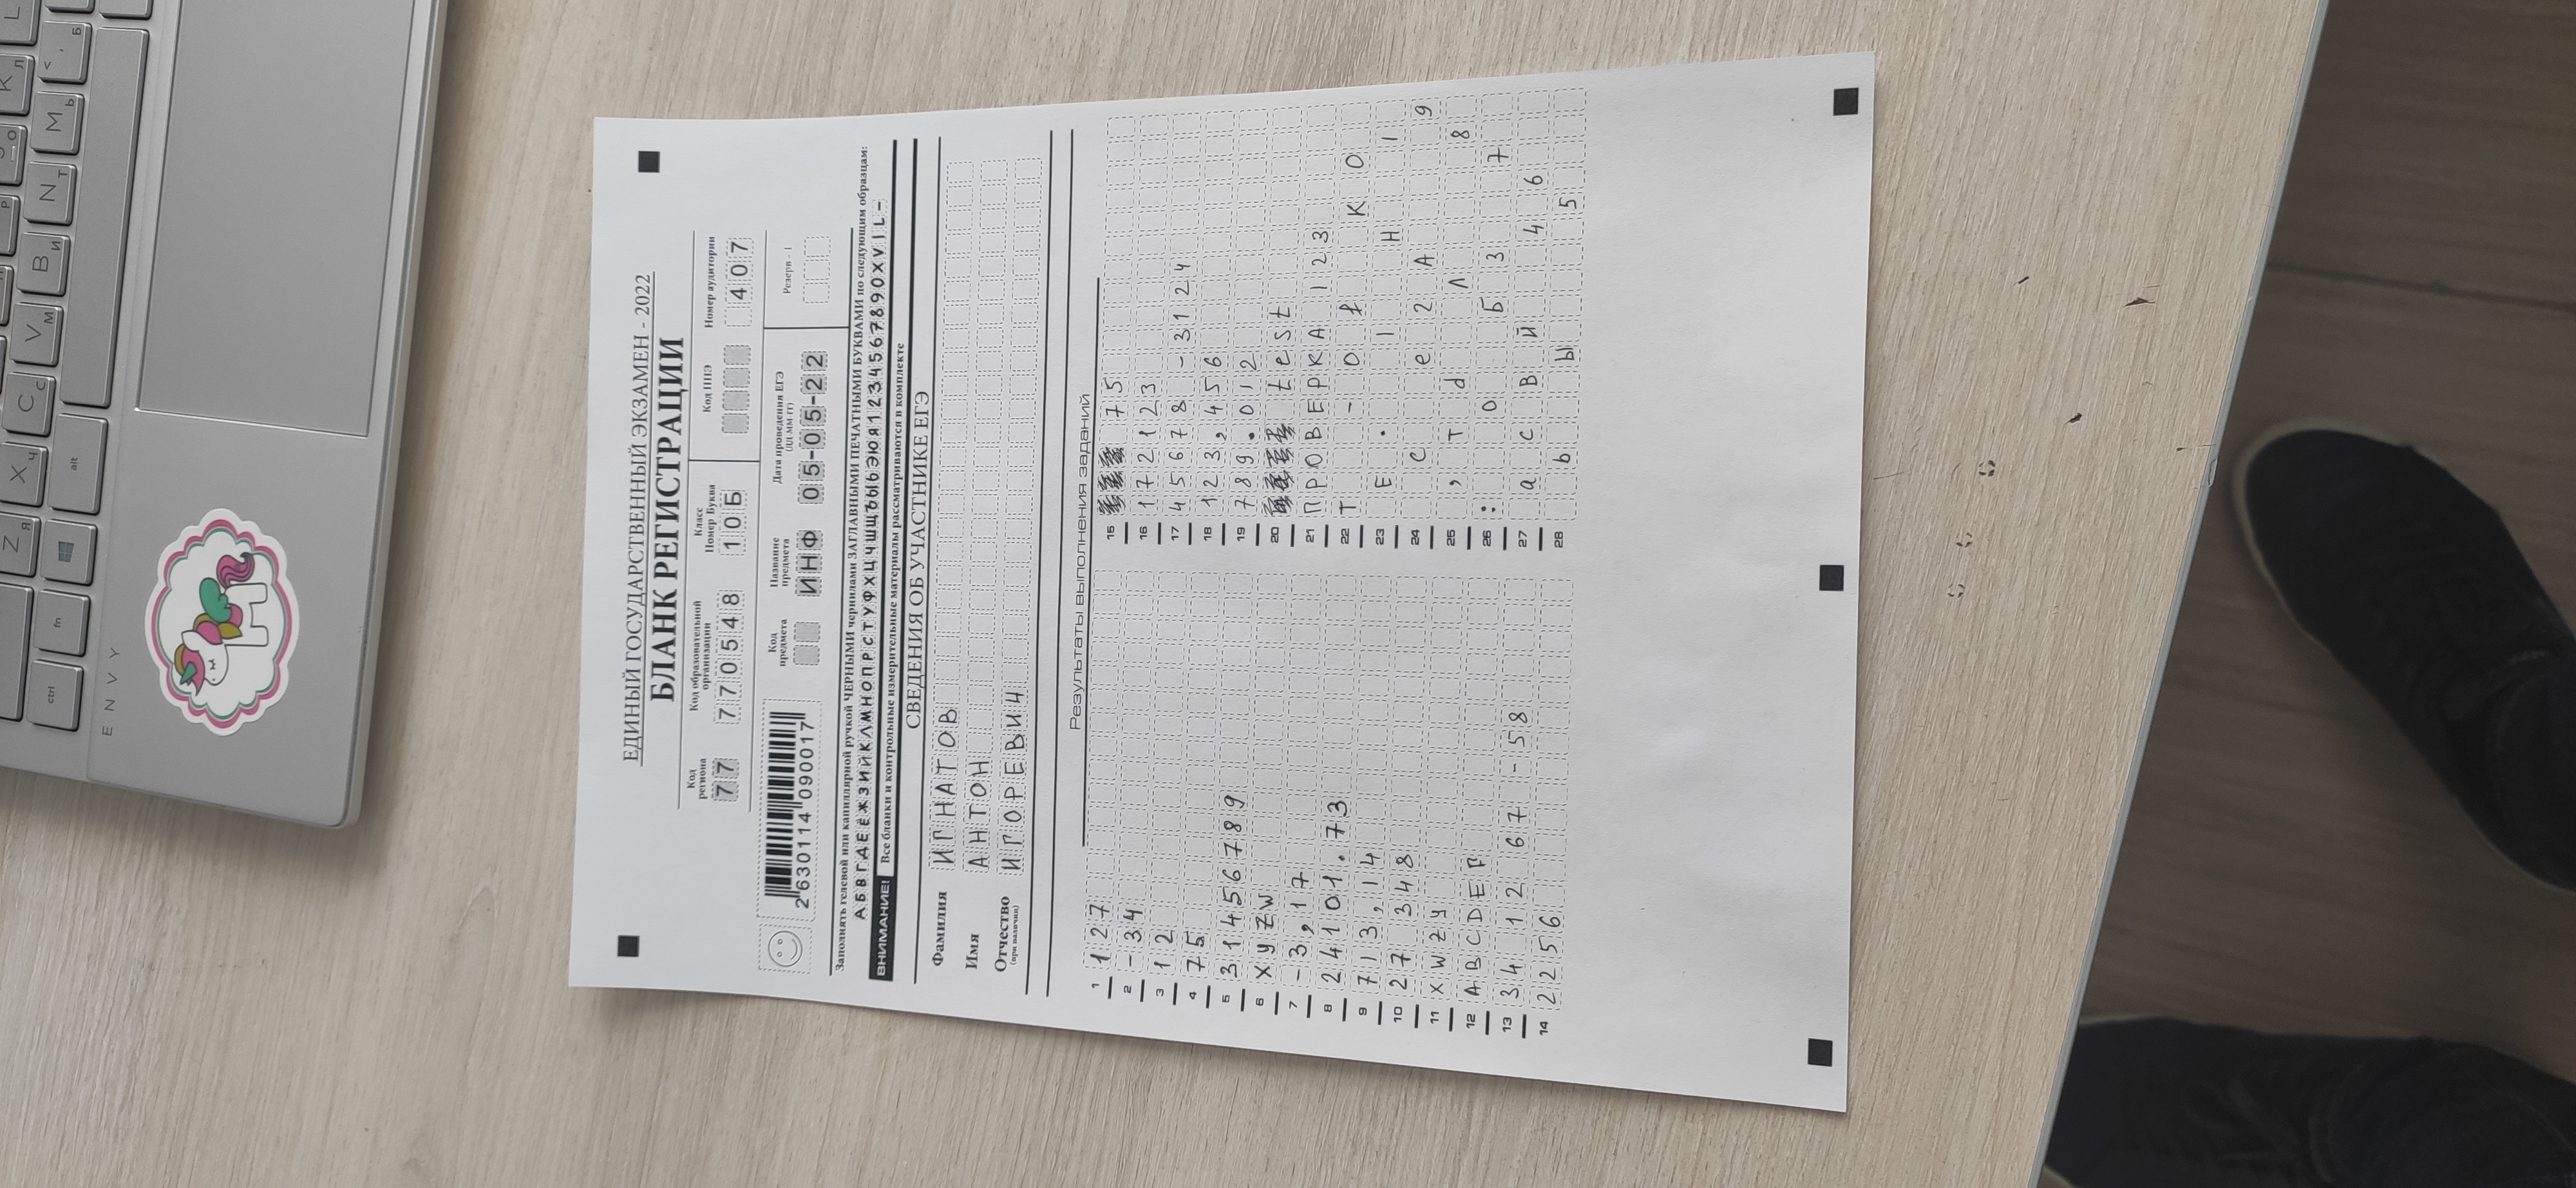 ЕДИНЫЙ ГОСУДАРСТВЕННЫЙ ЭКЗАМЕН - 2022
БЛАНК РЕГИСТРАЦИИ
Код региона
Код образовательной организации
Класс Номер Буква
Код ППЭ
Номер аудитории
77
770548
10Б
407
2630114090017
Код предмета
Название предмета
Дата проведения ЕГЭ (ДД.ММ.ГГ)
Резерв - 1
ИНФ
05-05-22
Заполнять гелевой или капиллярной ручкой ЧЕРНЫМИ чернилами ЗАГЛАВНЫМИ ПЕЧАТНЫМИ БУКВАМИ по следующим образцам:
АБВГДЕЁЖЗИЙКЛМНОПРСТУФХЦЧШЩЪЫЬЭЮЯ1234567890XVIL-
ВНИМАНИЕ! Все бланки и контрольные измерительные материалы рассматриваются в комплекте
СВЕДЕНИЯ ОБ УЧАСТНИКЕ ЕГЭ
Фамилия ИГНАТОВ
Имя АНТОН
Отчество ИГОРЕВИЧ
(при наличии)
Результаты выполнения заданий
1 127
2 -34
3 12
4 75
5 31456789
6 XYZW
7 -3,17
8 24101.73
9 713,14
10 27 348
11 XWZY
12 ABCDEF
13 34 12 67 -58
14 2256
15 75
16 172123
17 45678 -3124
18 123,456
19 789.012
20 test
21 ПРОВЕРКА 123
22 Т - О К О
23 Е . 1 Н 1
24 С е 2 А 9
25 , Т d Л 8
26 : О Б 3 7
27 а С В Й 4 6
28 Ь Ы 5
ENVY
ctrl
fn
alt
Z Я
X Ч
C С
V М
B И
N Т
M Ь
< , Б